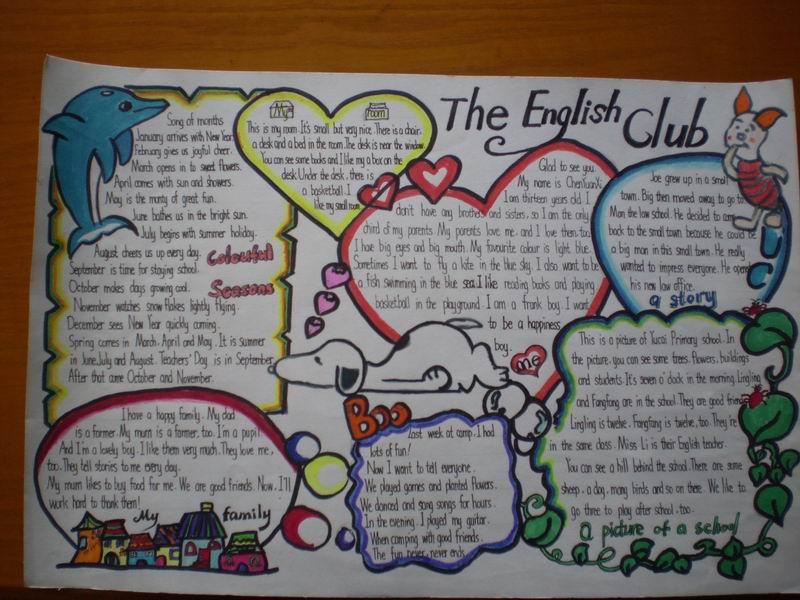 The English Club
Song of months
January arrives with New Year.
February gives us joyful cheer.
March opens in to sweet flowers.
April comes with sun and showers.
May is the munty of great fun.
June bathes us in the bright sun.
July begins with summer holiday.
August cheers us up every day.
September is time for staying school.
October makes days growing cool.
November watches snow flakes lightly flying.
December sees New Year quickly coming.
Spring comes in March, April and May. It is summer
in June, July and August. Teachers' Day is in September
After that come October and November.
Colourful
Seasons
My room
This is my room. It's small but very nice. There is a chair,
a desk and a bed in the room. The desk is near the window.
You can see some books and I like my box on the
desk. Under the desk, there is
a basketball. I
like my small room.
Glad to see you.
My name is
I am thirteen years old. I
don't have any brothers and sisters, so I am the only
third of my parents. My parents love me, and I love them, too.
I hae big eyes and big mouth. My favourite colour is light blue.
Sometimes I want to fly a kite in the blue sky. I also want to be
a fish swimming in the blue sea. I like reading books and playing
basketball in the playground. I am a frank boy. I want
to be a happiness
boy.
me
Joe grew up in a small
town. Big then moved away to go to
Man the law school. He decided to
back to the small town because he could be
a big man in this small town. He really
wanted to impress everyone. He opend
his new law office.
a story
I have a happy family. My dad
is a farmer. My mum is a farmer, too. I'm a pupil.
And I'm a lovely boy. I like them very much. They love me,
too. They tell stories to me every day.
My mum likes to buy food for me. We are good friends. Now, I'll
work hard to thank them!
My family
Boo
Last week at camp, I had
lots of fun!
Now I want to tell everyone.
We played games and planted flowers.
We danced and sang songs for hours.
In the evening, I played my guitar.
When camping with good friends.
The fun never, never ends.
This is a picture of Yucai Primary school. In
the picture, you can see some trees, flowers, buildings
and students. It's seven o'clock in the morning. Lingling
and Fangfang are in the school. They are good friends
Lingling is twelve. Fangfang is twelve, too. They're
in the same class. Miss Li is their English teacher.
You can see a hill behind the school. There are some
sheep, a dog, many birds and so on there. We like to
go three to play after school, too.
a picture of a school